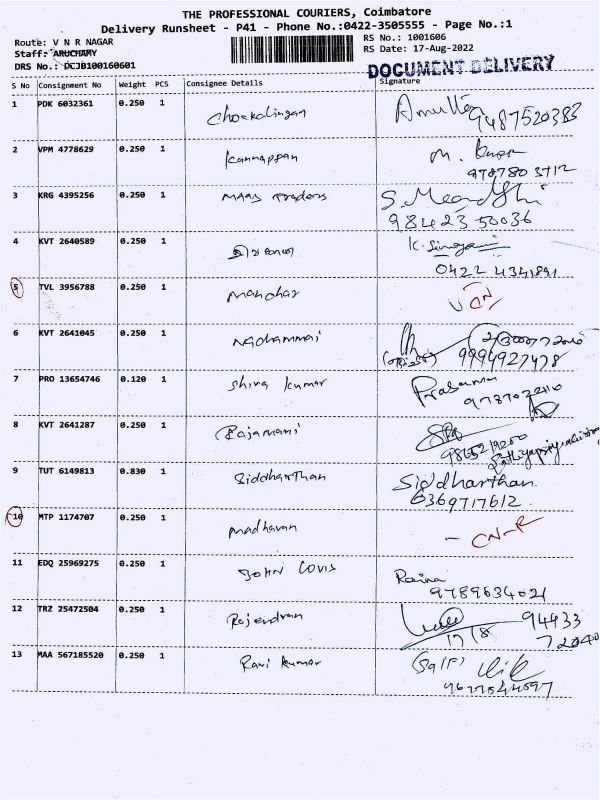 THE PROFESSIONAL COURIERS, Coimbatore
Delivery Runsheet - P41 - Phone No.:0422-3505555 - Page No.:1
Route: V N R NAGAR
RS No.: 1001606
Staff: ARUCHAMY
RS Date: 17-Aug-2022
DRS No.: DCJB100160601
DOCUMENT DELIVERY
S No Consignment No Weight PCS Consignee Details Signature
1 PDK 6032361 0.250 1 Chockalingam
9487520383
2 VPM 4778629 0.250 1 Kannappan M.
9787803712
3 KRG 4395256 0.250 1 Maas Traders S. Meandhi
9842350036
4 KVT 2640589 0.250 1 K.
0422 4341891
5 TVL 3956788 0.250 1 Manohar
6 KVT 2641045 0.250 1 Nachammai
9994927478
7 PRO 13654746 0.120 1 Shiva Kumar Prasanna
8 KVT 2641287 0.250 1 Rajamani
9 TUT 6149813 0.830 1 Siddharthan Siddharthan.
6369717612
10 MTP 1174707 0.250 1 Madhavan - CN-R
11 EDQ 25969275 0.250 1 John Lovis Raina
9789634021
12 TRZ 25472504 0.250 1 Rajendran 94433
17/8 72040
13 MAA 567185520 0.250 1 Ravi Kumar (Self)